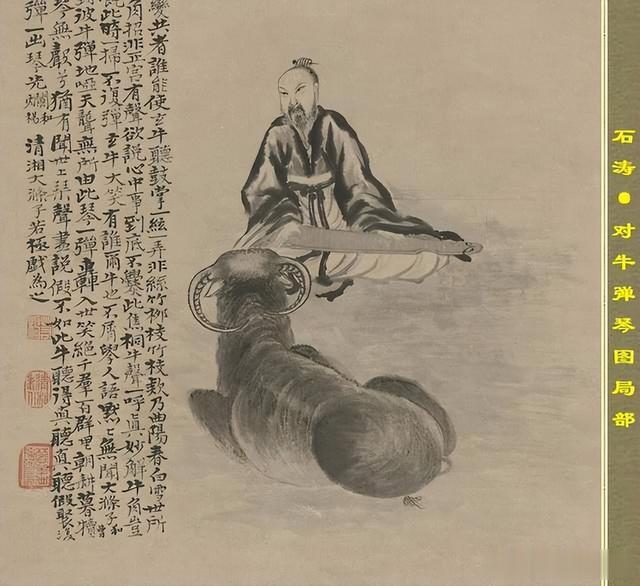 石涛●对牛弹琴图局部
變共者誰能使玄牛聽鼓掌一絃一弄非絲竹柳枝竹枝欸乃曲陽春白雪世所
角招非正宮有聲欲說心中事到底不爨此焦桐牛聲一呼真妙解牛角豈
此時一掃不復彈玄牛大笑有誰爾牛也不屑學人語默默無聞大滌子
到彼牛彈地啞天聾無所由此琴一彈轟入世笑絕千群百群里朝耕暮犢
琴無聲兮猶有聞世上琴聲盡說假不如此牛聽得真聽真聽假聚
彈一出琴先 清湘大滌子若極戲為之